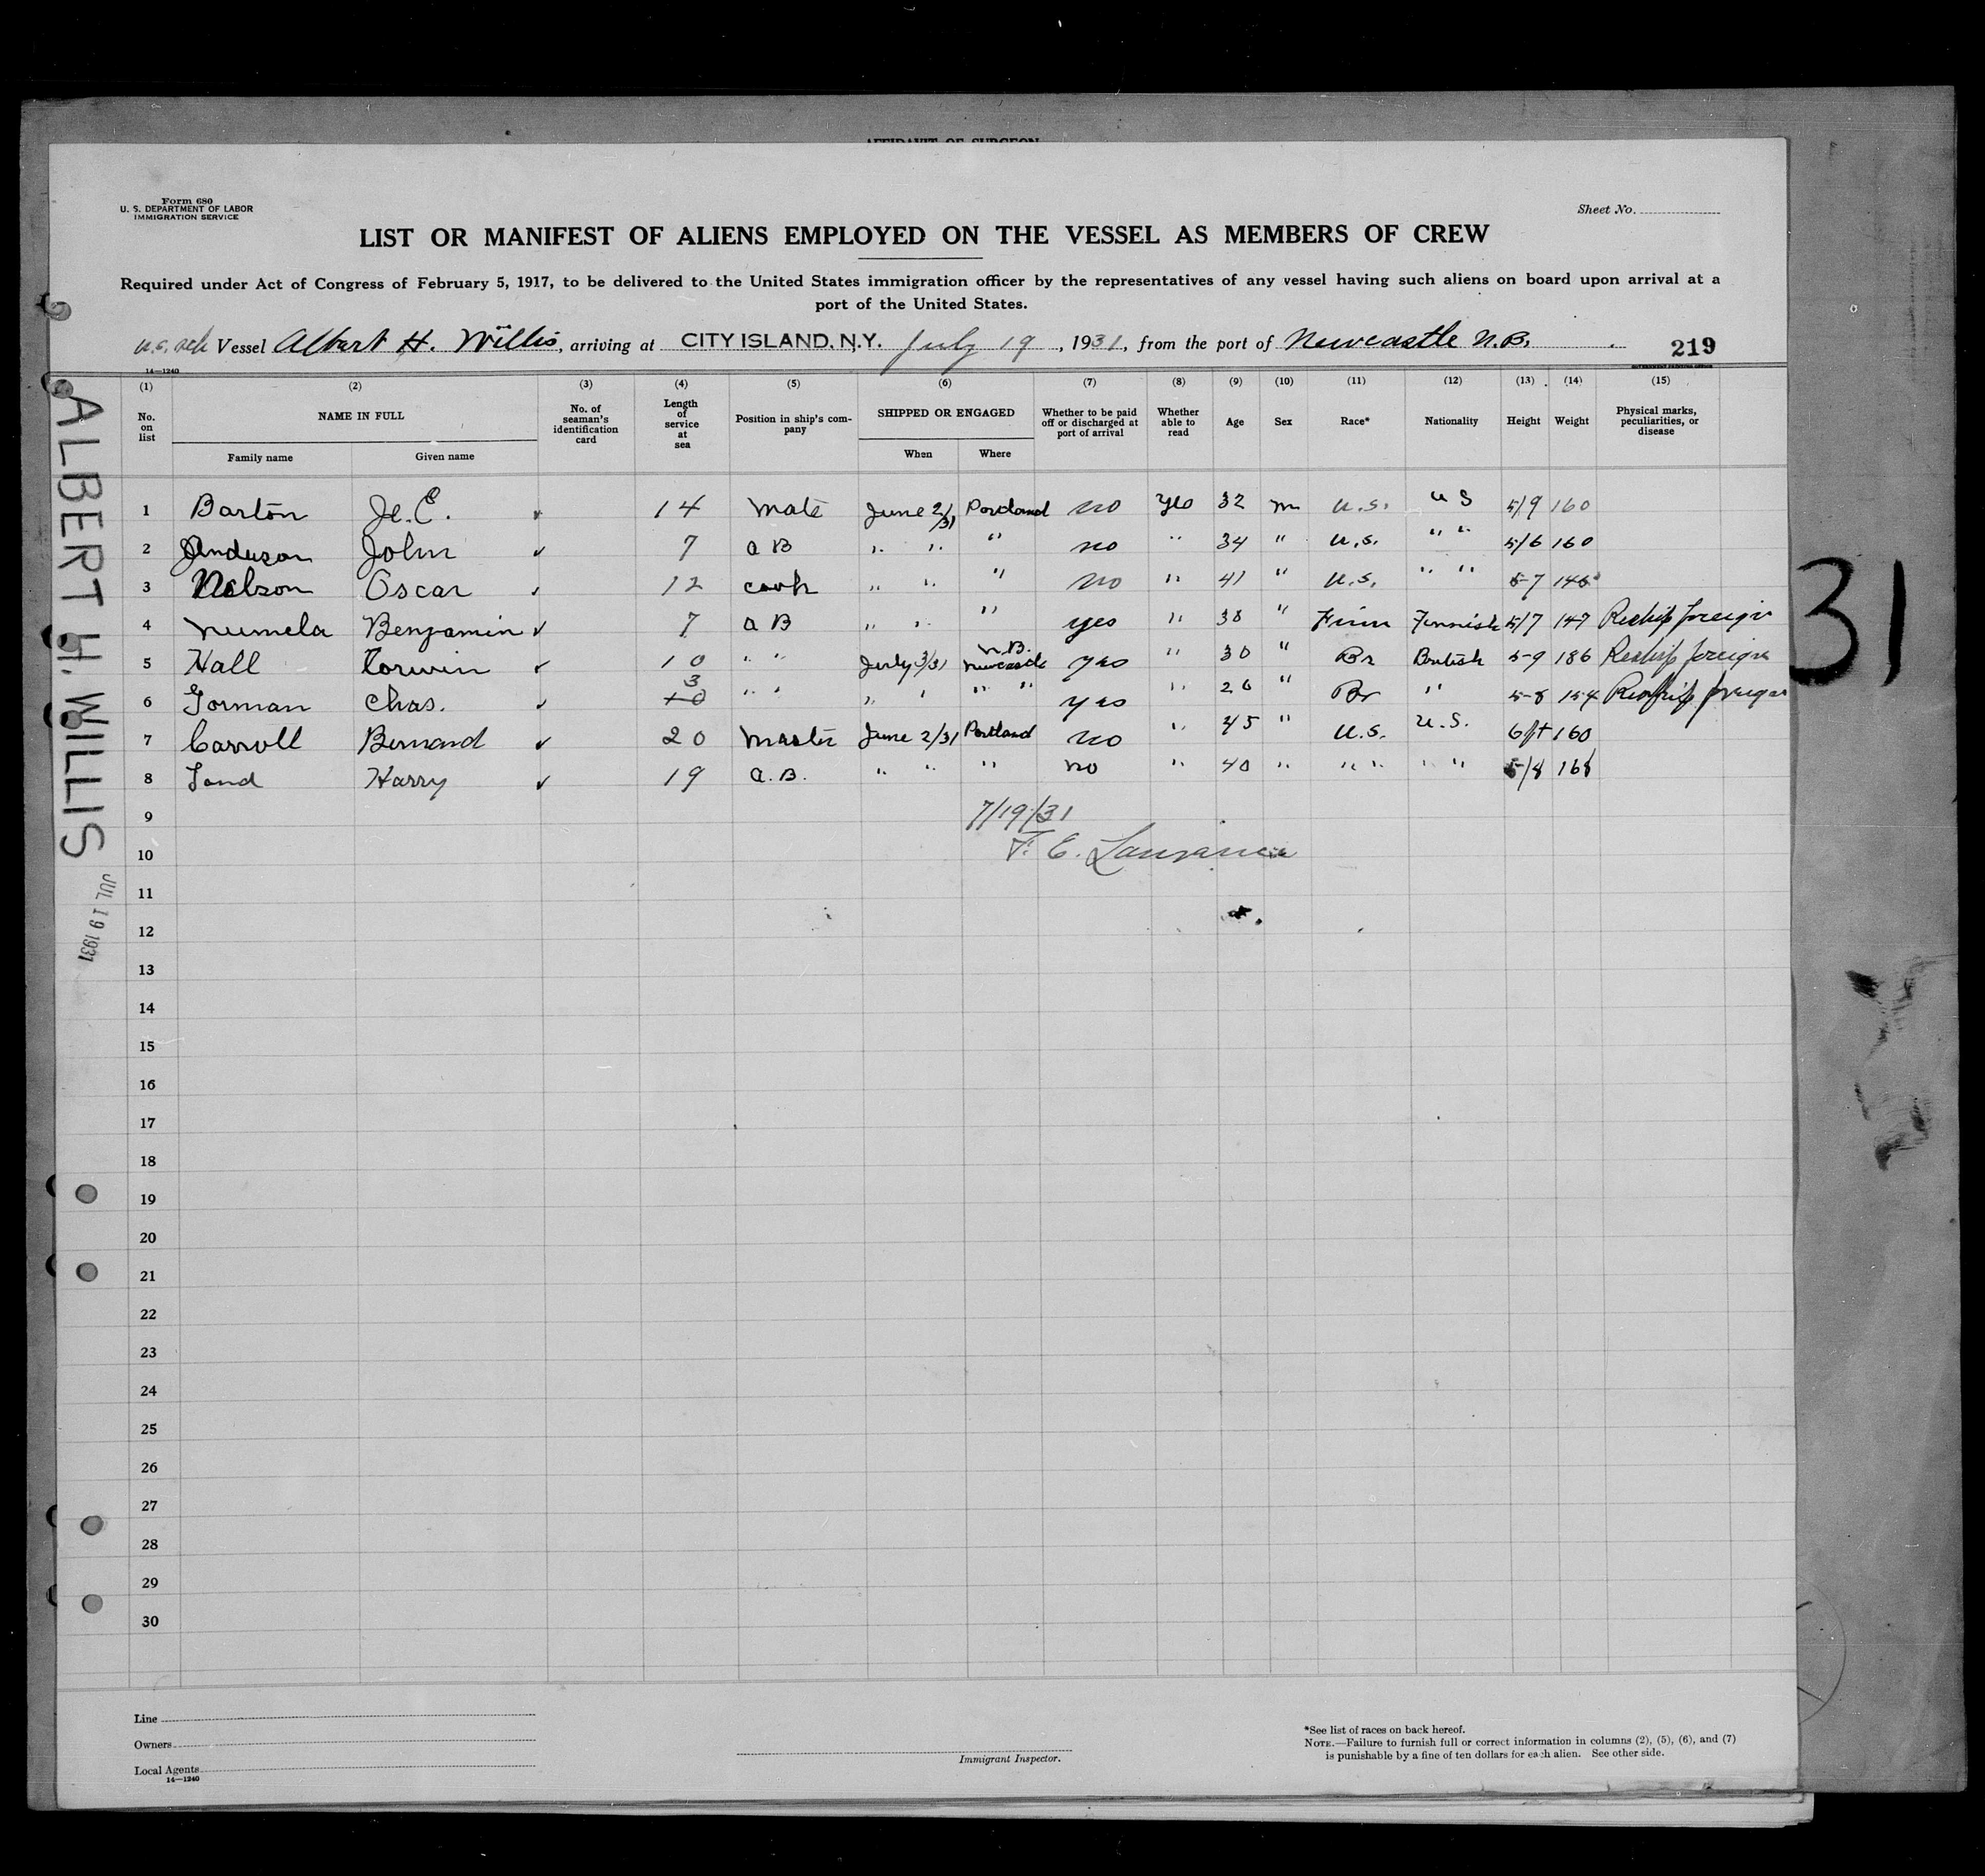 AFFIDAVIT OF SURGEON
Form 680
U. S. DEPARTMENT OF LABOR
IMMIGRATION SERVICE
Sheet No.
LIST OR MANIFEST OF ALIENS EMPLOYED ON THE VESSEL AS MEMBERS OF CREW
Required under Act of Congress of February 5, 1917, to be delivered to the United States immigration officer by the representatives of any vessel having such aliens on board upon arrival at a
port of the United States.
u.s. sch Vessel Albert H. Willis, arriving at CITY ISLAND, N.Y. July 19, 1931, from the port of Newcastle N.B. 219
14—1240
(1) (2) (3) (4) (5) (6) (7) (8) (9) (10) (11) (12) (13) (14) (15)
No. on list NAME IN FULL No. of seaman's identification card Length of service at sea Position in ship's company SHIPPED OR ENGAGED Whether to be paid off or discharged at port of arrival Whether able to read Age Sex Race* Nationality Height Weight Physical marks, peculiarities, or disease
Family name Given name When Where
1 Barton E. 14 mate June 2/31 Portland no yes 32 m U.S. U S 5/9 160
2 Anderson John 7 a B " " " no " 34 " U.S. " " 5/6 160
3 Nelson Oscar 12 cook " " " no " 41 " U.S. " " 5-7
4 Numela Benjamin 7 a B " " " yes " 38 " Finn Finnish 5/7 147 Reship foreign
5 Hall Corwin 10 " " July 3/31 N.B. Newcastle yes " 30 " Br British 5-9 186 Reship foreign
6 Gorman Chas. 3 10 " " " " " " yes " 26 " Br " 5-8 154 Reship foreign
7 Carroll Bernard 20 Master June 2/31 Portland no " 45 " U.S. U.S. 6ft 160
8 Harry 19 a.B. " " " no " 40 " " " " " 5/8
9 7/19/31
10 F. E.
11
12
13
14
15
16
17
18
19
20
21
22
23
24
25
26
27
28
29
30
Line
Owners
Local Agents
14—1240
Immigrant Inspector.
*See list of races on back hereof.
NOTE.—Failure to furnish full or correct information in columns (2), (5), (6), and (7)
is punishable by a fine of ten dollars for each alien. See other side.
ALBERT H. WILLIS
JUL 19 1931
31